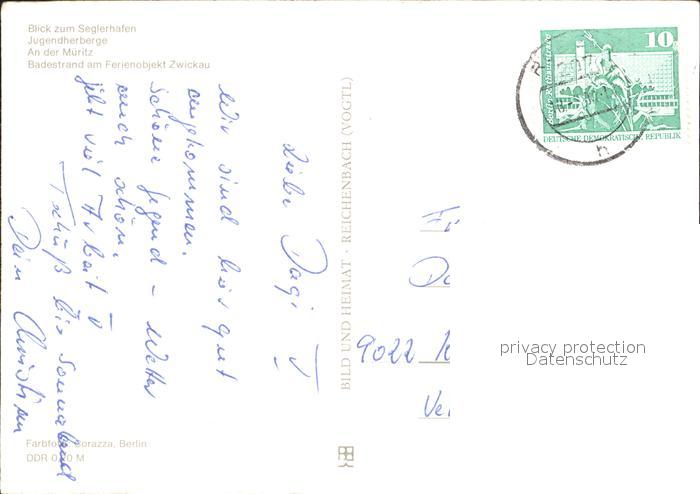 Blick zum Seglerhafen
Jugendherberge
An der Müritz
Badestrand am Ferienobjekt Zwickau
Liebe Dagi
Wir sind hier gut
angekommen.
Schöne Gegend – Wetter
auch schön.
gibt viel Arbeit
Tschüß bis Sonnabend
Dein Christian
Farbfoto: Corazza, Berlin
DDR 0,20 M
BILD UND HEIMAT · REICHENBACH (VOGTL)
10
DEUTSCHE DEMOKRATISCHE REPUBLIK
9022
privacy protection
Datenschutz